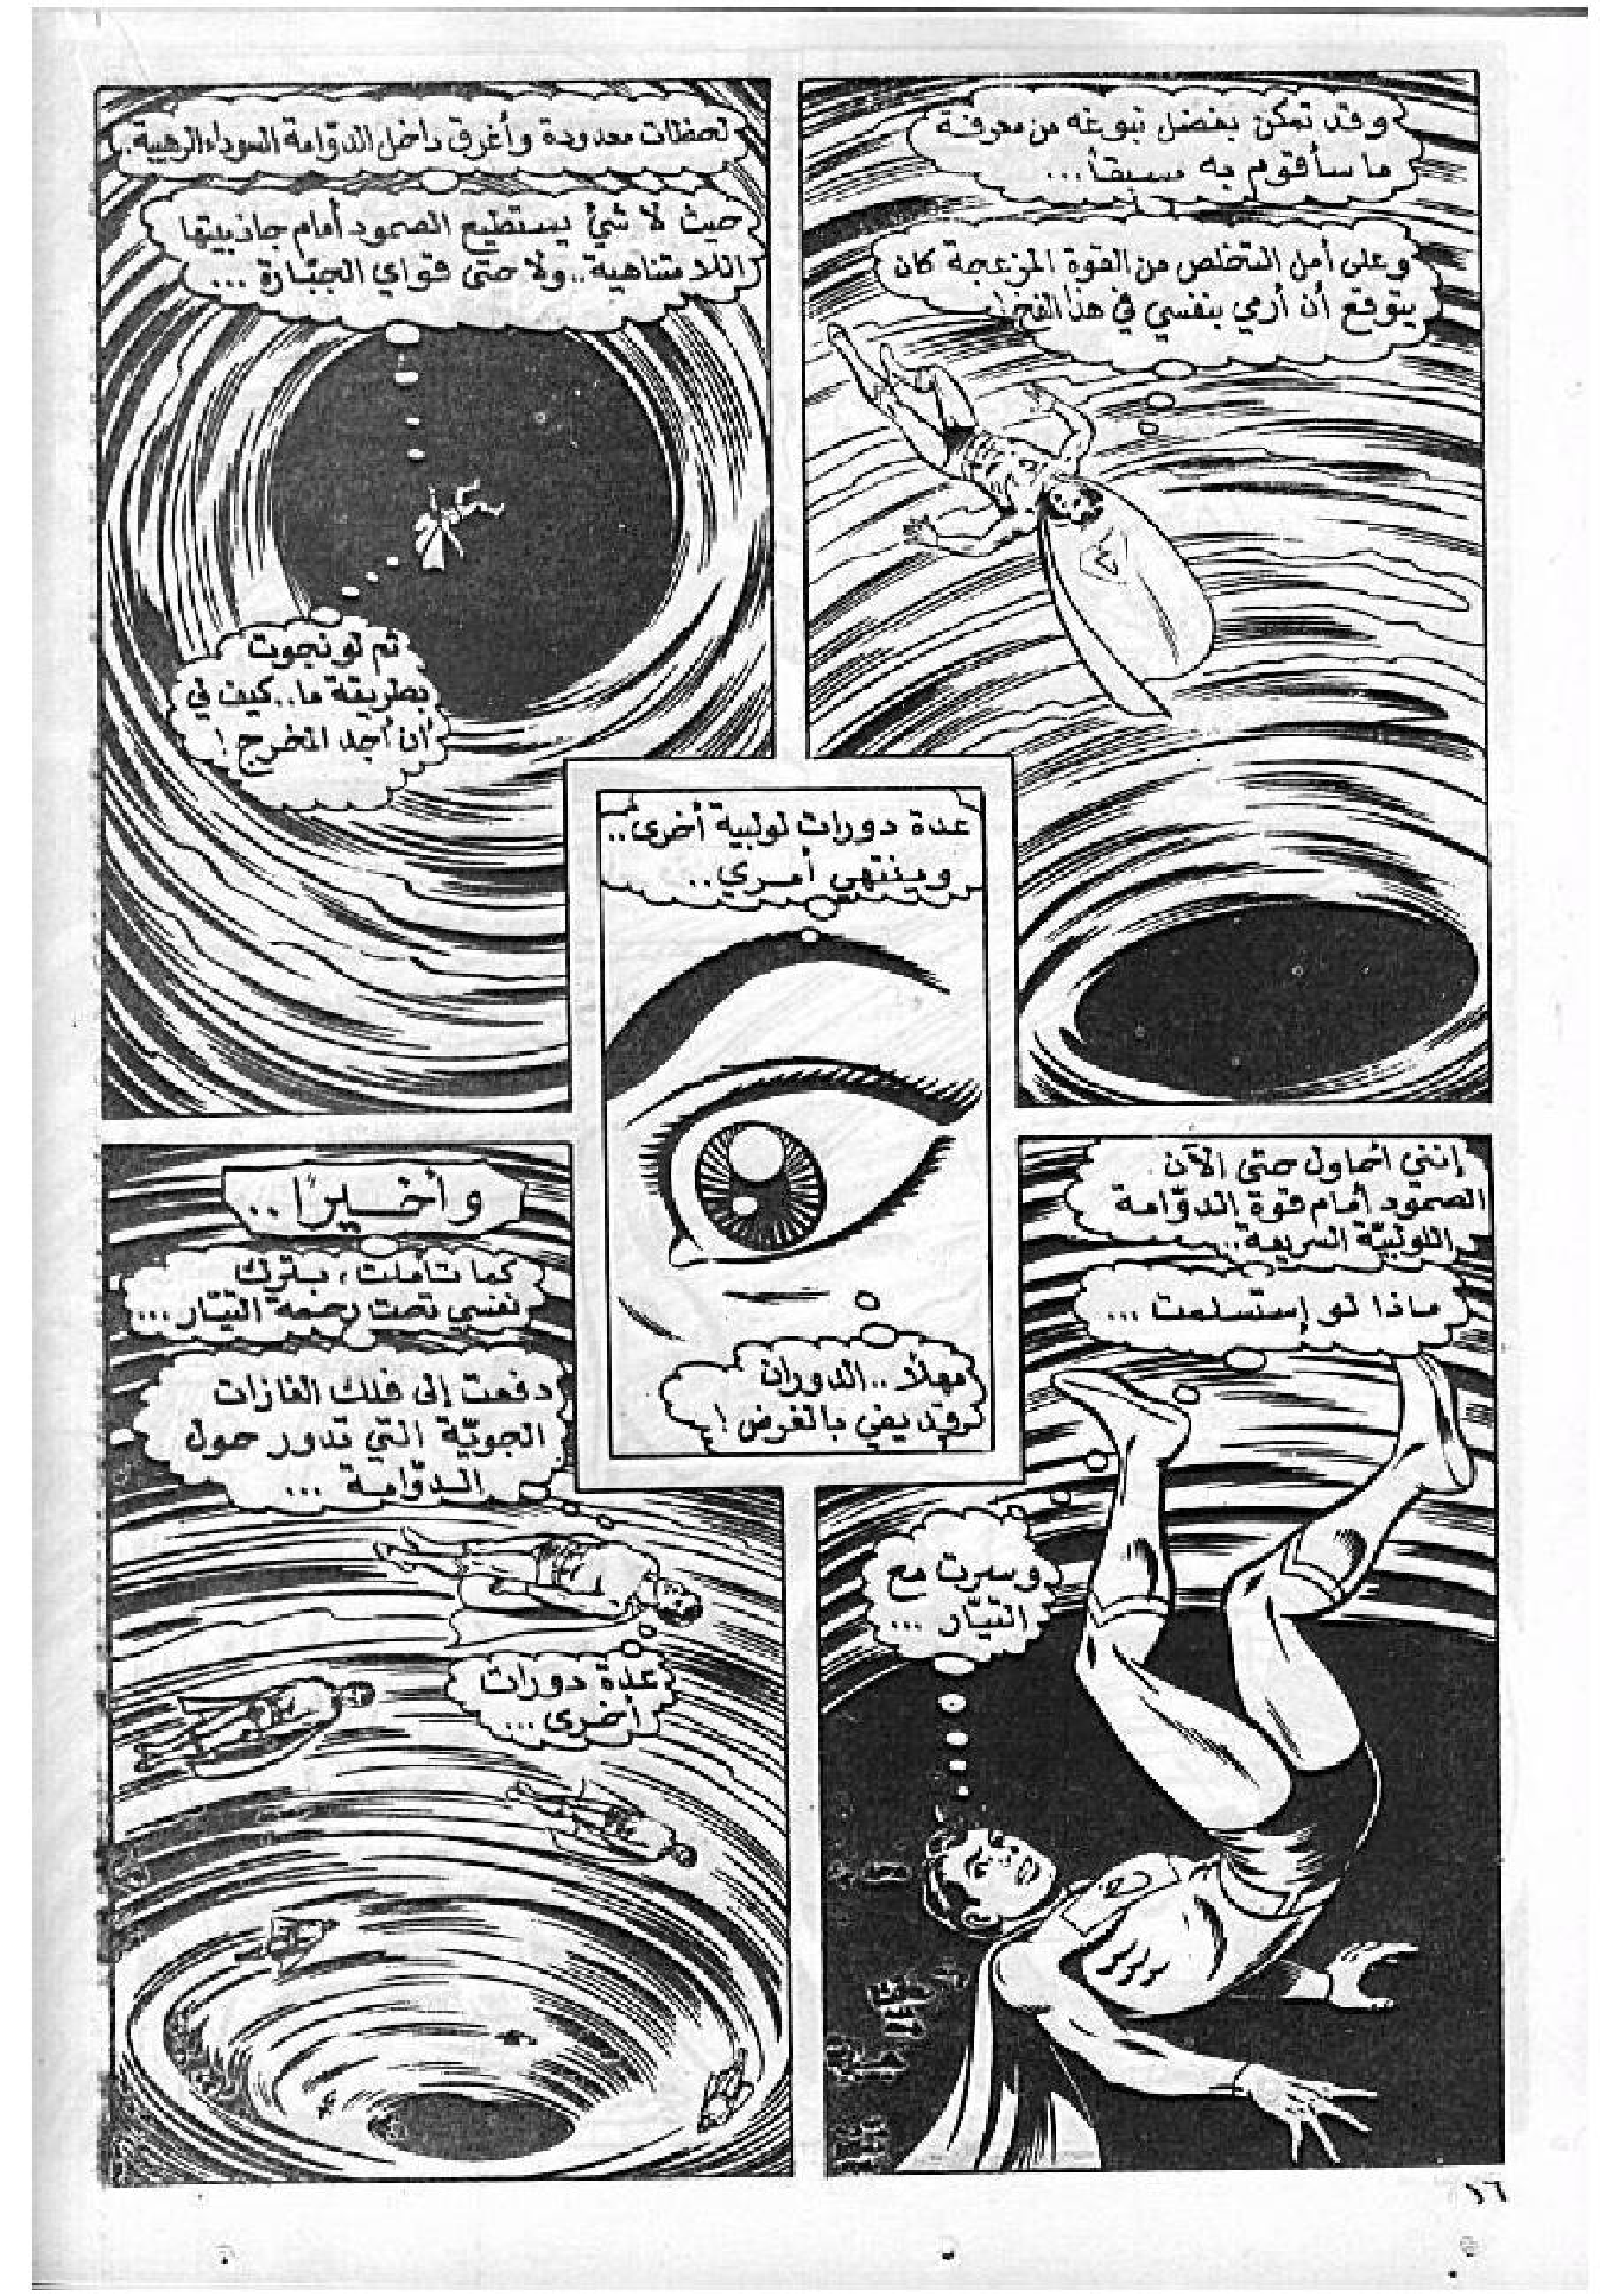 وقد تمكن بفضل نبوغه من معرفة
ما سأقوم به مسبقاً...
وعلى أمل التخلص من القوة المزعجة كان
يتوقع أن أرمي بنفسي في هذا الفخ!
لحظات معدودة وأغرق داخل الدوّامة السوداء الرهيبة..
حيث لا شيء يستطيع الصمود أمام جاذبيتها
اللامتناهية.. ولا حتى قواي الجبّارة...
ثم لو نجوت
بطريقة ما.. كيف لي
أن أجد المخرج!
عدة دورات لولبية أخرى..
وينتهي أمري..
مهلاً.. الدوران
قد يفي بالغرض!
إنني أحاول حتى الآن
الصمود أمام قوة الدوّامة
اللولبيّة السريعة..
ماذا لو إستسلمت...
وسرت مع
التيّار...
وأخيرًا..
كما تأملت، بترك
نفسي تحت رحمة التيّار...
دفعت إلى فلك الغازات
الجويّة التي تدور حول
الدوّامة...
عدة دورات
أخرى...
١٦